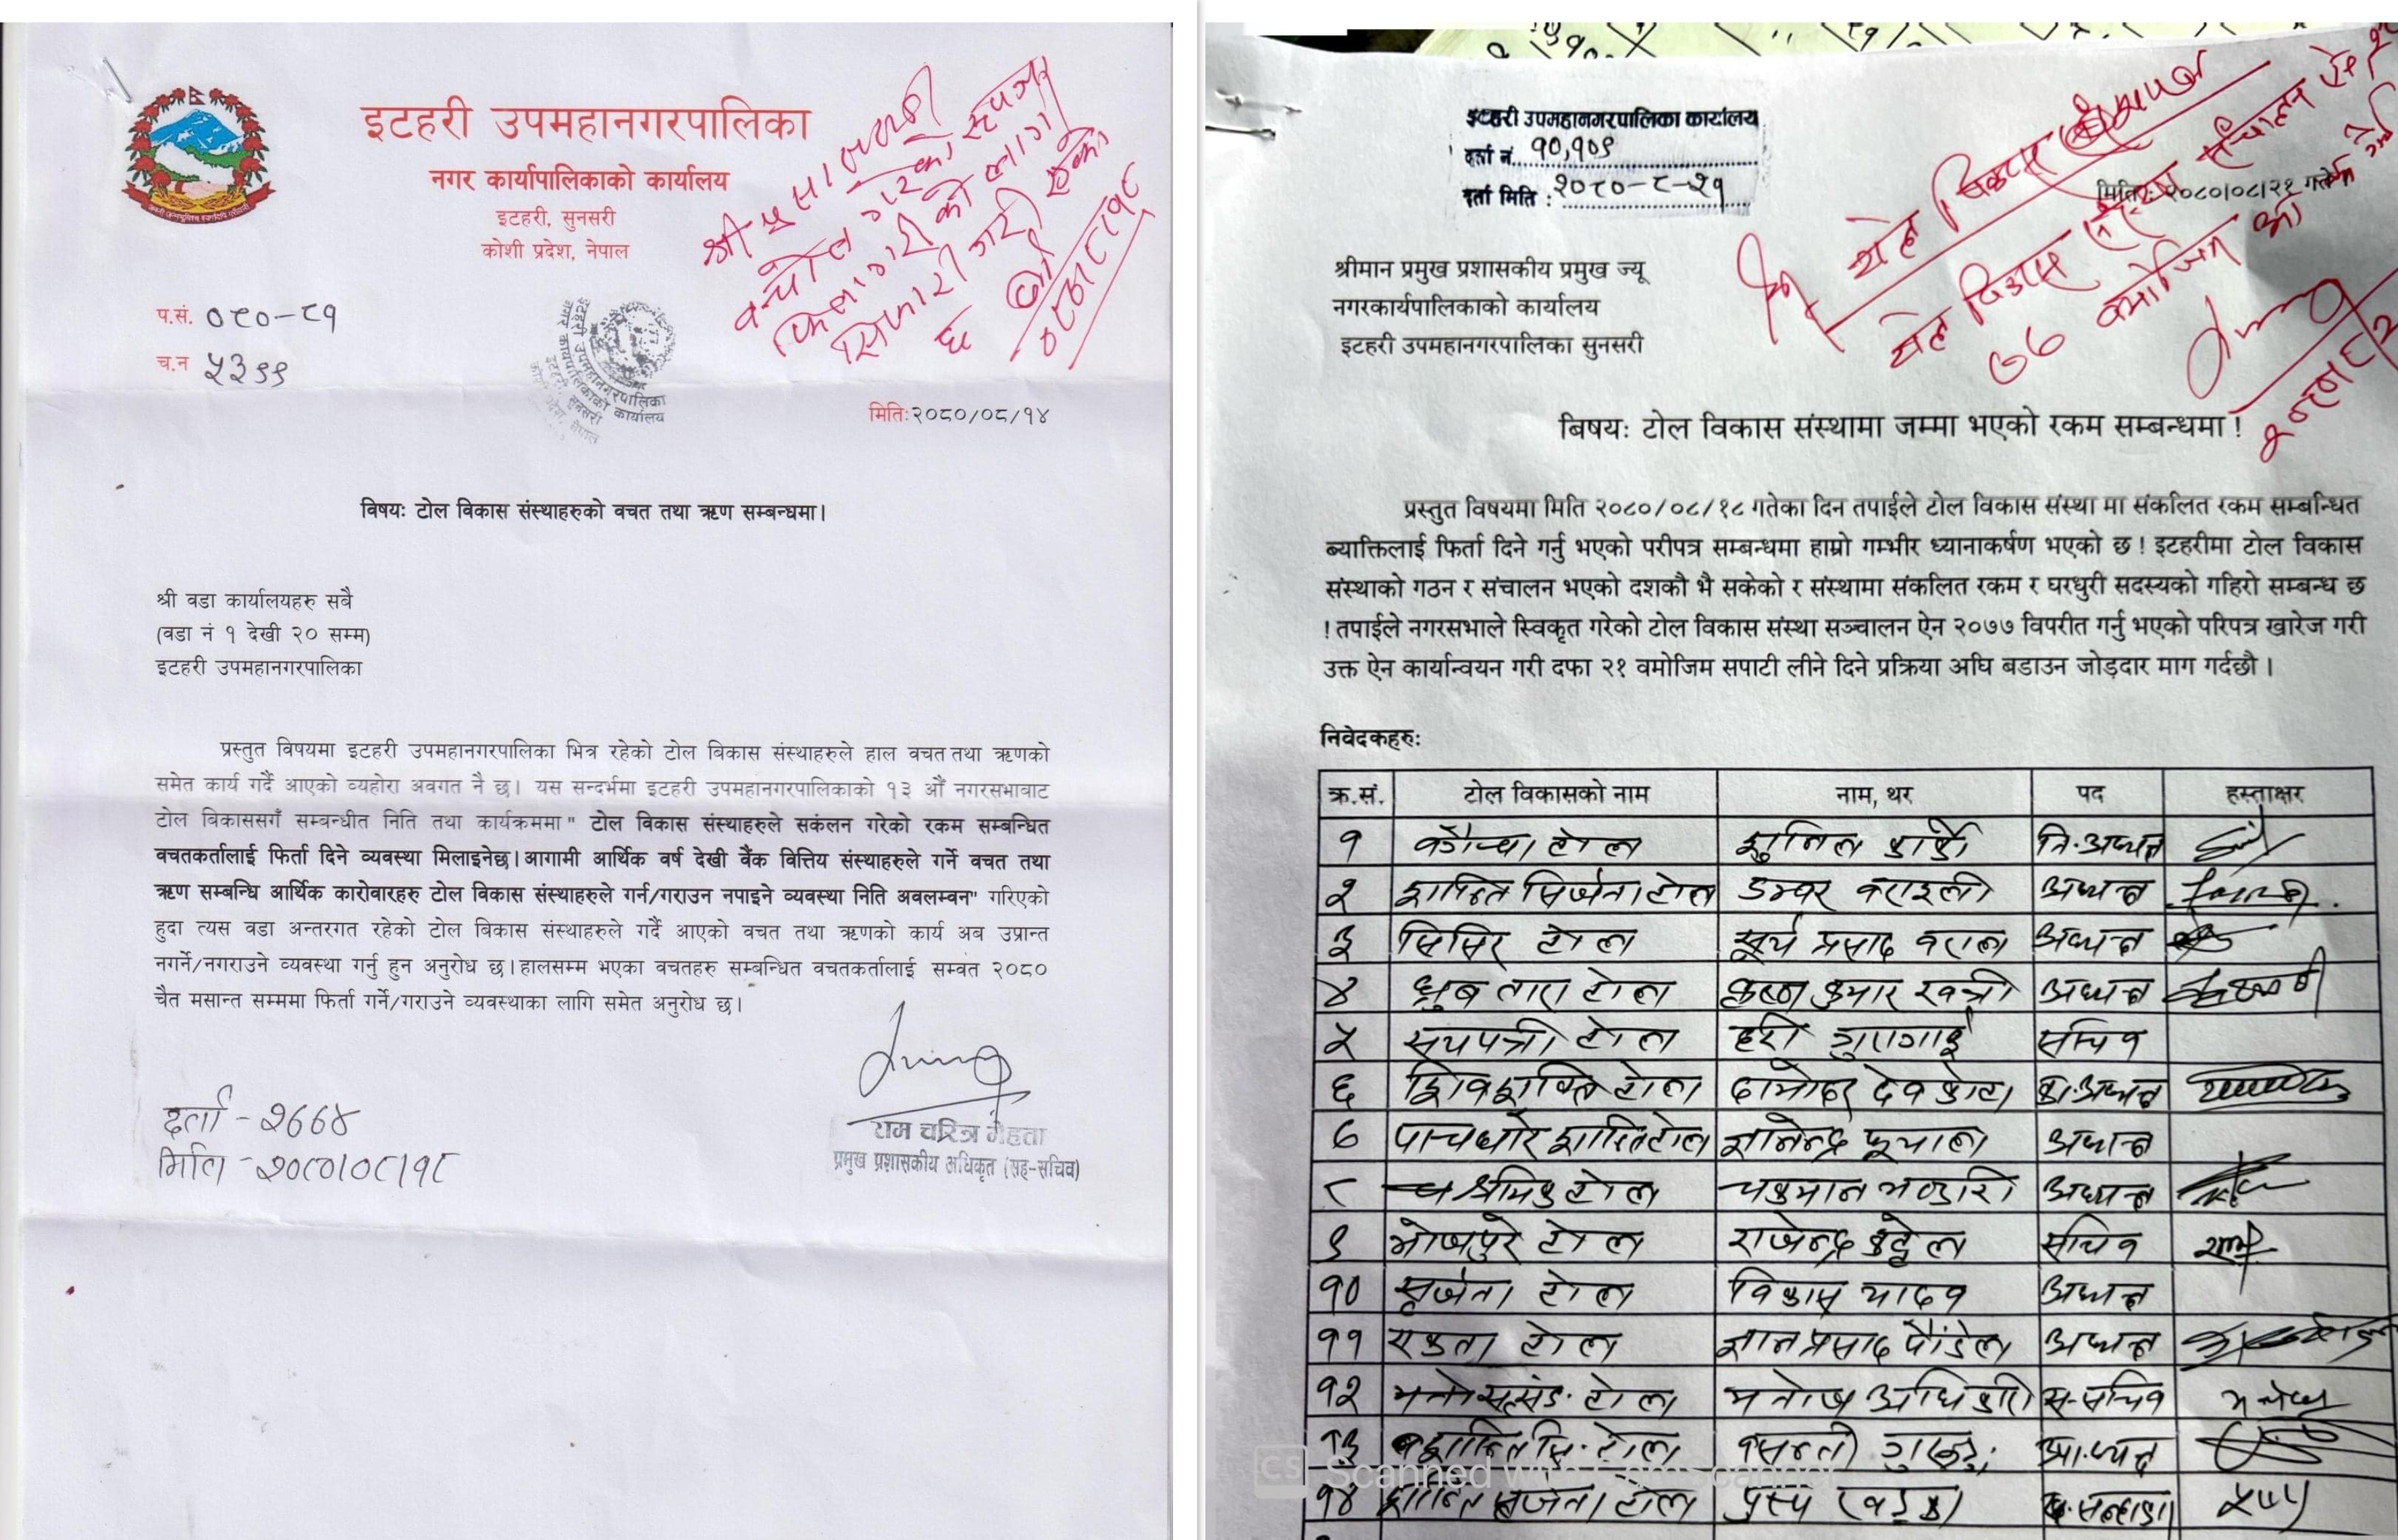 इटहरी उपमहानगरपालिका
नगर कार्यापालिकाको कार्यालय
इटहरी, सुनसरी
कोशी प्रदेश, नेपाल
प.सं. ०८०-८१
च.न ५३९९
मिति:२०८०/०८/१४
विषयः टोल विकास संस्थाहरुको वचत तथा ऋण सम्बन्धमा।
श्री वडा कार्यालयहरु सबै
(वडा नं १ देखी २० सम्म)
इटहरी उपमहानगरपालिका
प्रस्तुत विषयमा इटहरी उपमहानगरपालिका भित्र रहेको टोल बिकास संस्थाहरुले हाल वचत तथा ऋणको
समेत कार्य गर्दै आएको व्यहोरा अवगत नै छ। यस सन्दर्भमा इटहरी उपमहानगरपालिकाको १३ औं नगरसभाबाट
टोल बिकाससगँ सम्बन्धीत निति तथा कार्यक्रममा" टोल विकास संस्थाहरुले सकंलन गरेको रकम सम्बन्धित
वचतकर्तालाई फिर्ता दिने व्यवस्था मिलाइनेछ।आगामी आर्थिक वर्ष देखी वैंक वित्तिय संस्थाहरुले गर्ने वचत तथा
ऋण सम्बन्धि आर्थिक कारोवारहरु टोल विकास संस्थाहरुले गर्न/गराउन नपाइने व्यवस्था निति अवलम्वन" गरिएको
हुदा त्यस वडा अन्तरगत रहेको टोल बिकास संस्थाहरुले गर्दै आएको वचत तथा ऋणको कार्य अब उप्रान्त
नगर्ने/नगराउने व्यवस्था गर्नु हुन अनुरोध छ।हालसम्म भएका वचतहरु सम्बन्धित वचतकर्तालाई सम्वत २०८०
चैत मसान्त सम्ममा फिर्ता गर्ने/गराउने व्यवस्थाका लागि समेत अनुरोध छ।
राम चरित्र मेहता
प्रमुख प्रशासकीय अधिकृत (सह-सचिव)
दर्ता - २७७४
मिति - २०८०।०८।१८
इटहरी उपमहानगरपालिका कार्यालय
दर्ता नं. १०,१०९
दर्ता मिति : २०८०-८-२१
मितिः २०८०।०८।२१ गते
श्रीमान प्रमुख प्रशासकीय प्रमुख ज्यू
नगरकार्यपालिकाको कार्यालय
इटहरी उपमहानगरपालिका सुनसरी
बिषयः टोल विकास संस्थामा जम्मा भएको रकम सम्बन्धमा !
प्रस्तुत विषयमा मिति २०८०/०८/१८ गतेका दिन तपाईले टोल विकास संस्था मा संकलित रकम सम्बन्धित
ब्याक्तिलाई फिर्ता दिने गर्नु भएको परीपत्र सम्बन्धमा हाम्रो गम्भीर ध्यानाकर्षण भएको छ ! इटहरीमा टोल विकास
संस्थाको गठन र संचालन भएको दशकौ भै सकेको र संस्थामा संकलित रकम र घरधुरी सदस्यको गहिरो सम्बन्ध छ
! तपाईले नगरसभाले स्विकृत गरेको टोल विकास संस्था सञ्चालन ऐन २०७७ विपरीत गर्नु भएको परिपत्र खारेज गरी
उक्त ऐन कार्यान्वयन गरी दफा २१ वमोजिम सपाटी लीने दिने प्रक्रिया अघि बडाउन जोड़दार माग गर्दछौ ।
निवेदकहरुः
क्र.सं. टोल विकासको नाम नाम, थर पद हस्ताक्षर
१ टोल सुनिल कार्की नि.अध्यक्ष
२ शान्ति सिर्जना टोल डम्वर बराइली अध्यक्ष
३ सिसिर टोल सूर्य प्रसाद बराल अध्यक्ष
४ ध्रुब तारा टोल कृष्ण कुमार खत्री अध्यक्ष
५ सयपत्री टोल हरी गुरागाई सचिव
६ शिवशक्ति टोल दामोदर देवकोटा का.अध्यक्ष
७ पाचथरे शान्तिटोल ज्ञानेन्द्र फूयाल अध्यक्ष
८ श्रमिक टोल चक्रमान भण्डारी अध्यक्ष
९ भोजपुरे टोल राजेन्द्र कट्टेल सचिव
१० सृर्जना टोल विकास यादव अध्यक्ष
११ एकता टोल ज्ञानप्रसाद पौडेल अध्यक्ष
१२ टोल मनोज अधिकारी स-सचिव मनोज
१३ शान्ति सि. टोल वसन्ती
१४ शान्ति सृर्जना टोल
CS Scanned with CamScanner